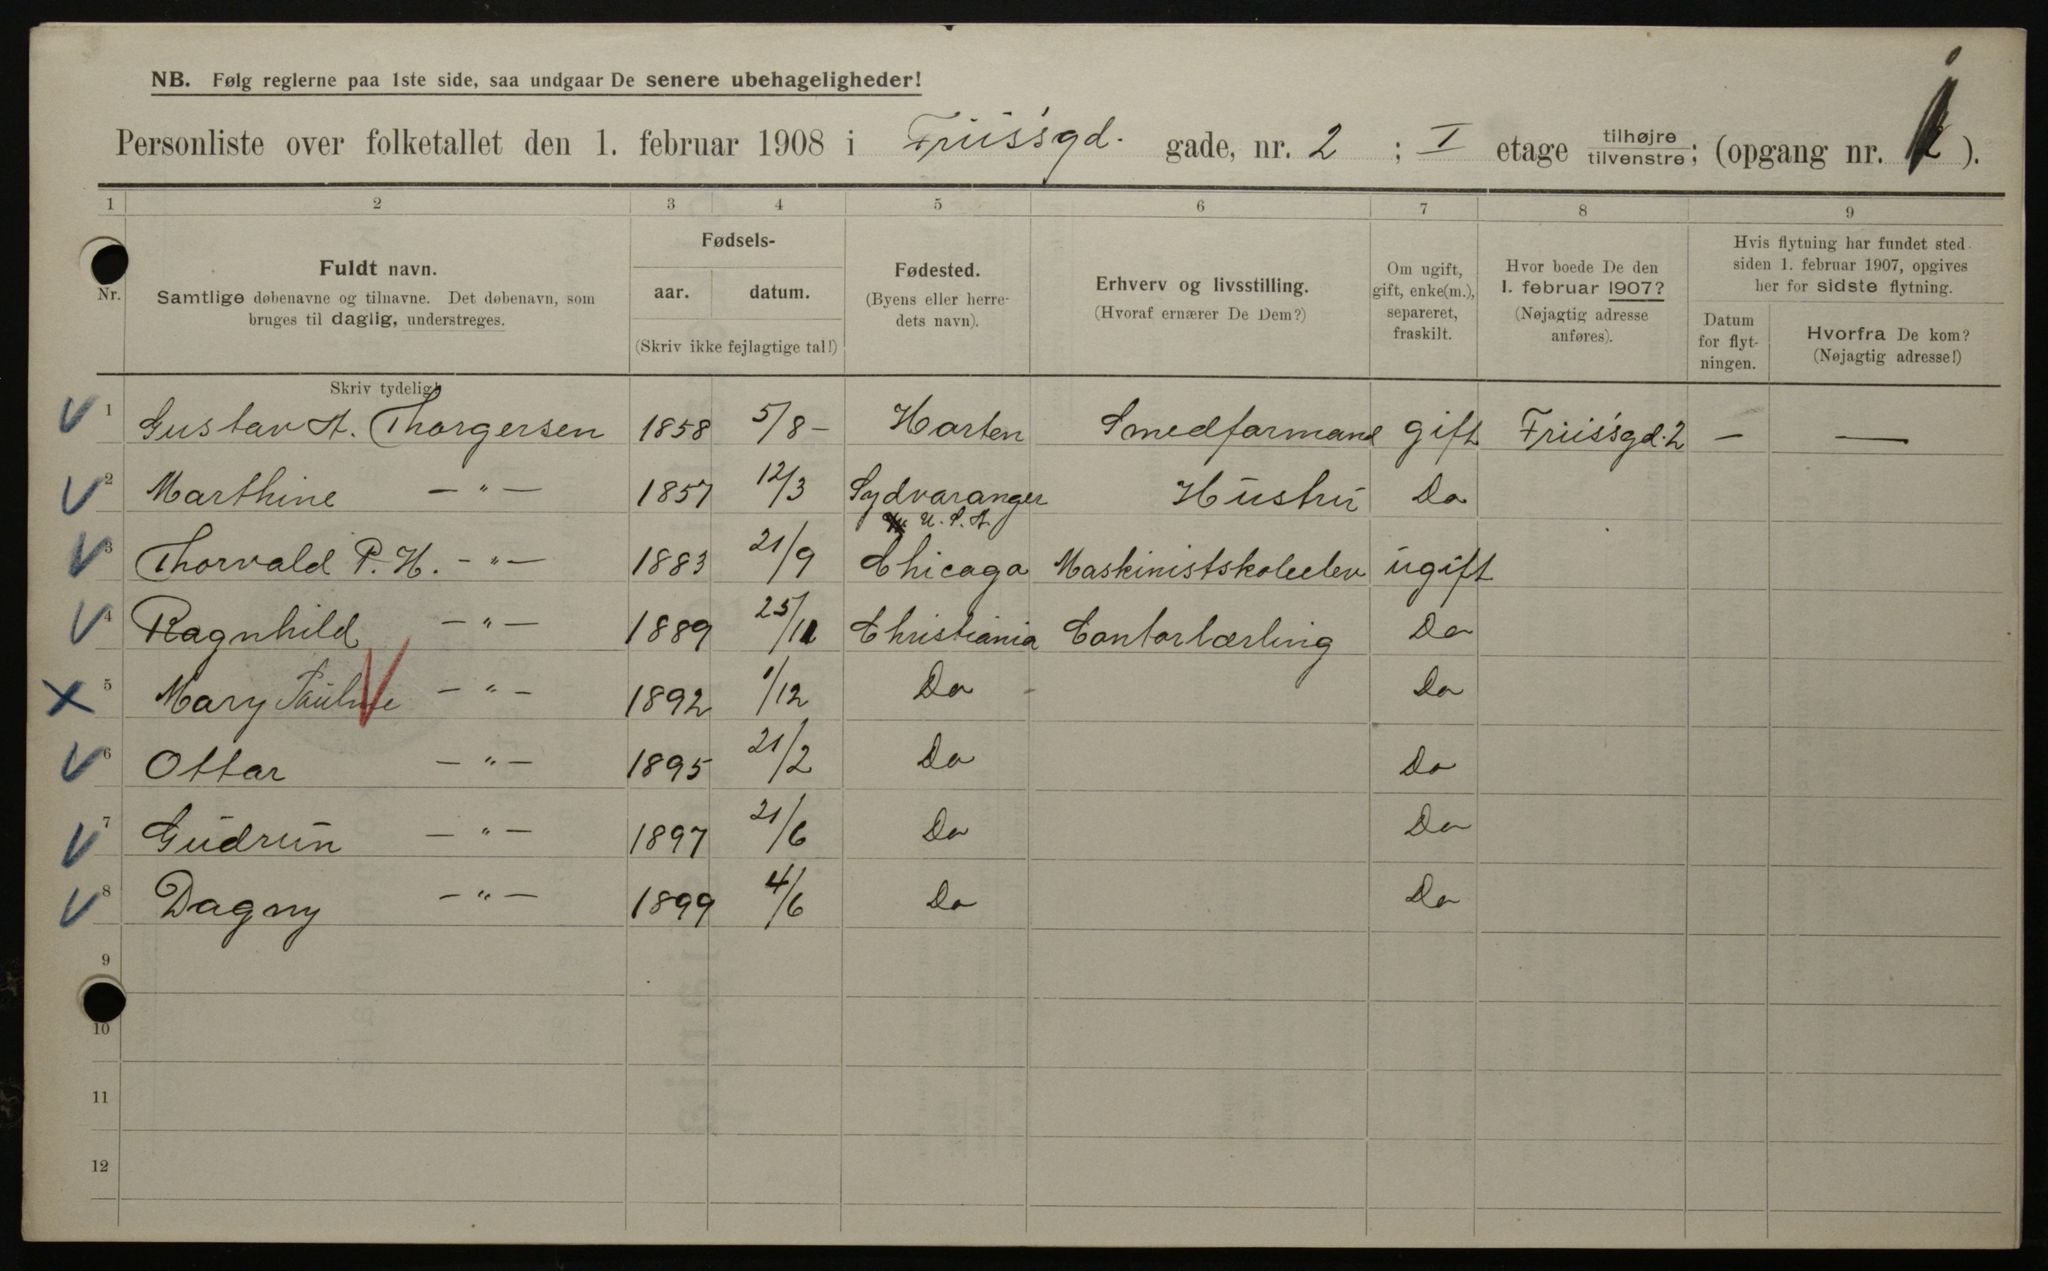 NB. Følg reglerne paa 1ste side, saa undgaar De senere ubehageligheder!
Personliste over folketallet den 1. februar 1908 i Friis'sgd. gade, nr. 2 ; I etage tilhøjre tilvenstre ; (opgang nr. ).
1 2 3 4 5 6 7 8 9
Nr.
Fuldt navn.
Samtlige døbenavne og tilnavne. Det døbenavn, som
bruges til daglig, understreges.
Skriv tydelig!
Fødsels-
aar. datum.
(Skriv ikke fejlagtige tal!)
Fødested.
(Byens eller herre-
dets navn).
Erhverv og livsstilling.
(Hvoraf ernærer De Dem?)
Om ugift,
gift, enke(m.),
separeret,
fraskilt.
Hvor boede De den
1. februar 1907?
(Nøjagtig adresse
anføres).
Hvis flytning har fundet sted
siden 1. februar 1907, opgives
her for sidste flytning.
Datum
for flyt-
ningen.
Hvorfra De kom?
(Nøjagtig adresse!)
1 Gustav A. Thorgersen 1858 5/8 – Horten Smedformand gift Friis'sgd. 2 — —
2 Marthine — " — 1857 12/3 Sydvaranger Hustru Do
3 Thorvald P. H. — " — 1883 21/9 U. S. A. Chicago Maskinistskoleelev ugift
4 Ragnhild — " — 1889 25/11 Christiania Contorlærling Do
5 Mary Pauline — " — 1892 1/12 Do Do
6 Ottar — " — 1895 21/2 Do Do
7 Gudrun — " — 1897 21/6 Do Do
8 Dagny — " — 1899 4/6 Do Do
9
10
11
12